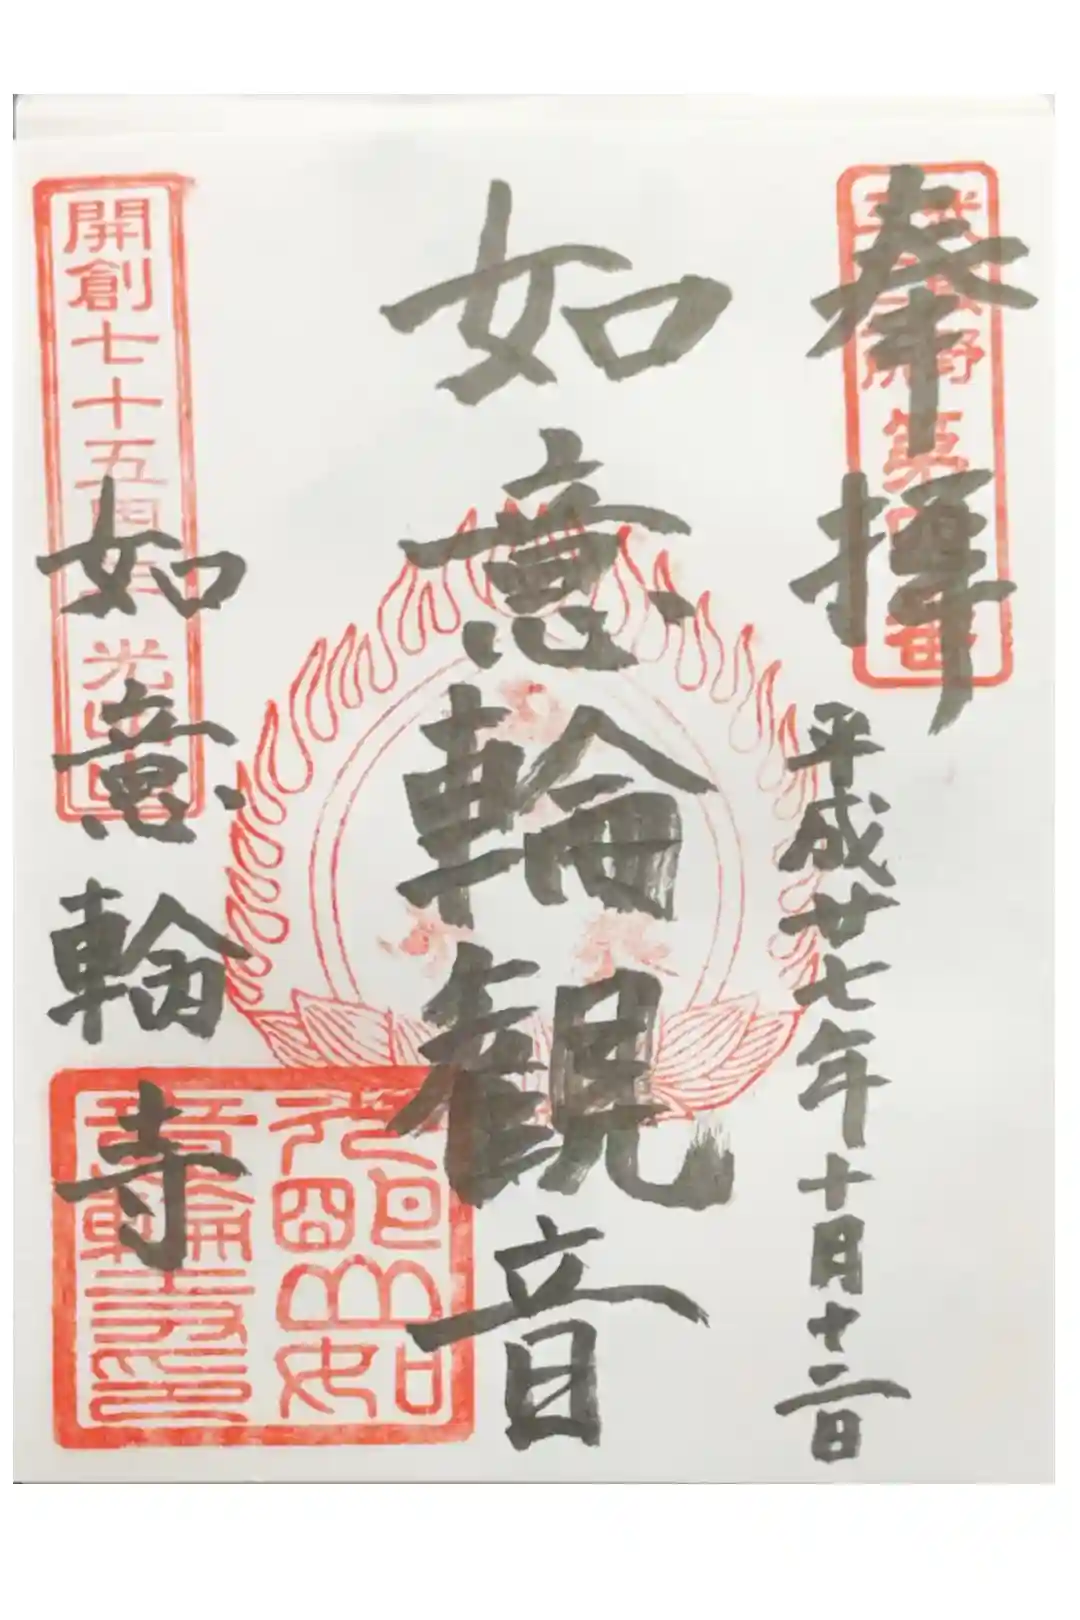 奉拝
平成廿七年十月十二日
如意輪観音
如意輪寺
開創七十五周年 光明山